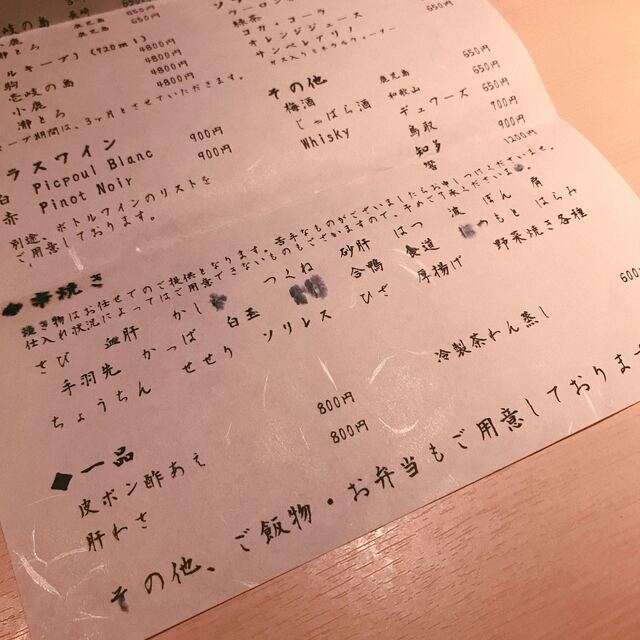 650円
鹿児島 650円
ルキープ) (720ml)
4800円
壱岐の島 4800円
小鹿 4800円
瀞とろ 4800円
キープ期間は、3ヶ月とさせていただきます。
ラスワイン
白 Picpoul Blanc 900円
赤 Pinot Noir 900円
別途、ボトルワインのリストを
ご用意しております。
緑茶
コカ・コーラ 650円
オレンジジュース 650円
サンペレグリノ
その他
梅酒 鹿児島 650円
じゃばら酒 和歌山 650円
Whisky デュワーズ 650円
鳥取 700円
知多 900円
響 1200円
◆串焼き
焼き物はお任せでのご提供となります。苦手なものがございましたらお申しつけくださいませ。
仕入れ状況によってはご用意できないものもございますので、予めご了承くださいませ。
さび 血肝 かし つくね 砂肝 はつ 波 ぼん 肩
手羽先 かっぱ 白玉 合鴨 食道 はつもと はらみ
ちょうちん せせり ソリレス ひざ 厚揚げ 野菜焼き各種
◆一品
皮ポン酢あえ 800円 冷製茶わん蒸し 600
肝わさ 800円
その他、ご飯物・お弁当もご用意しておりま